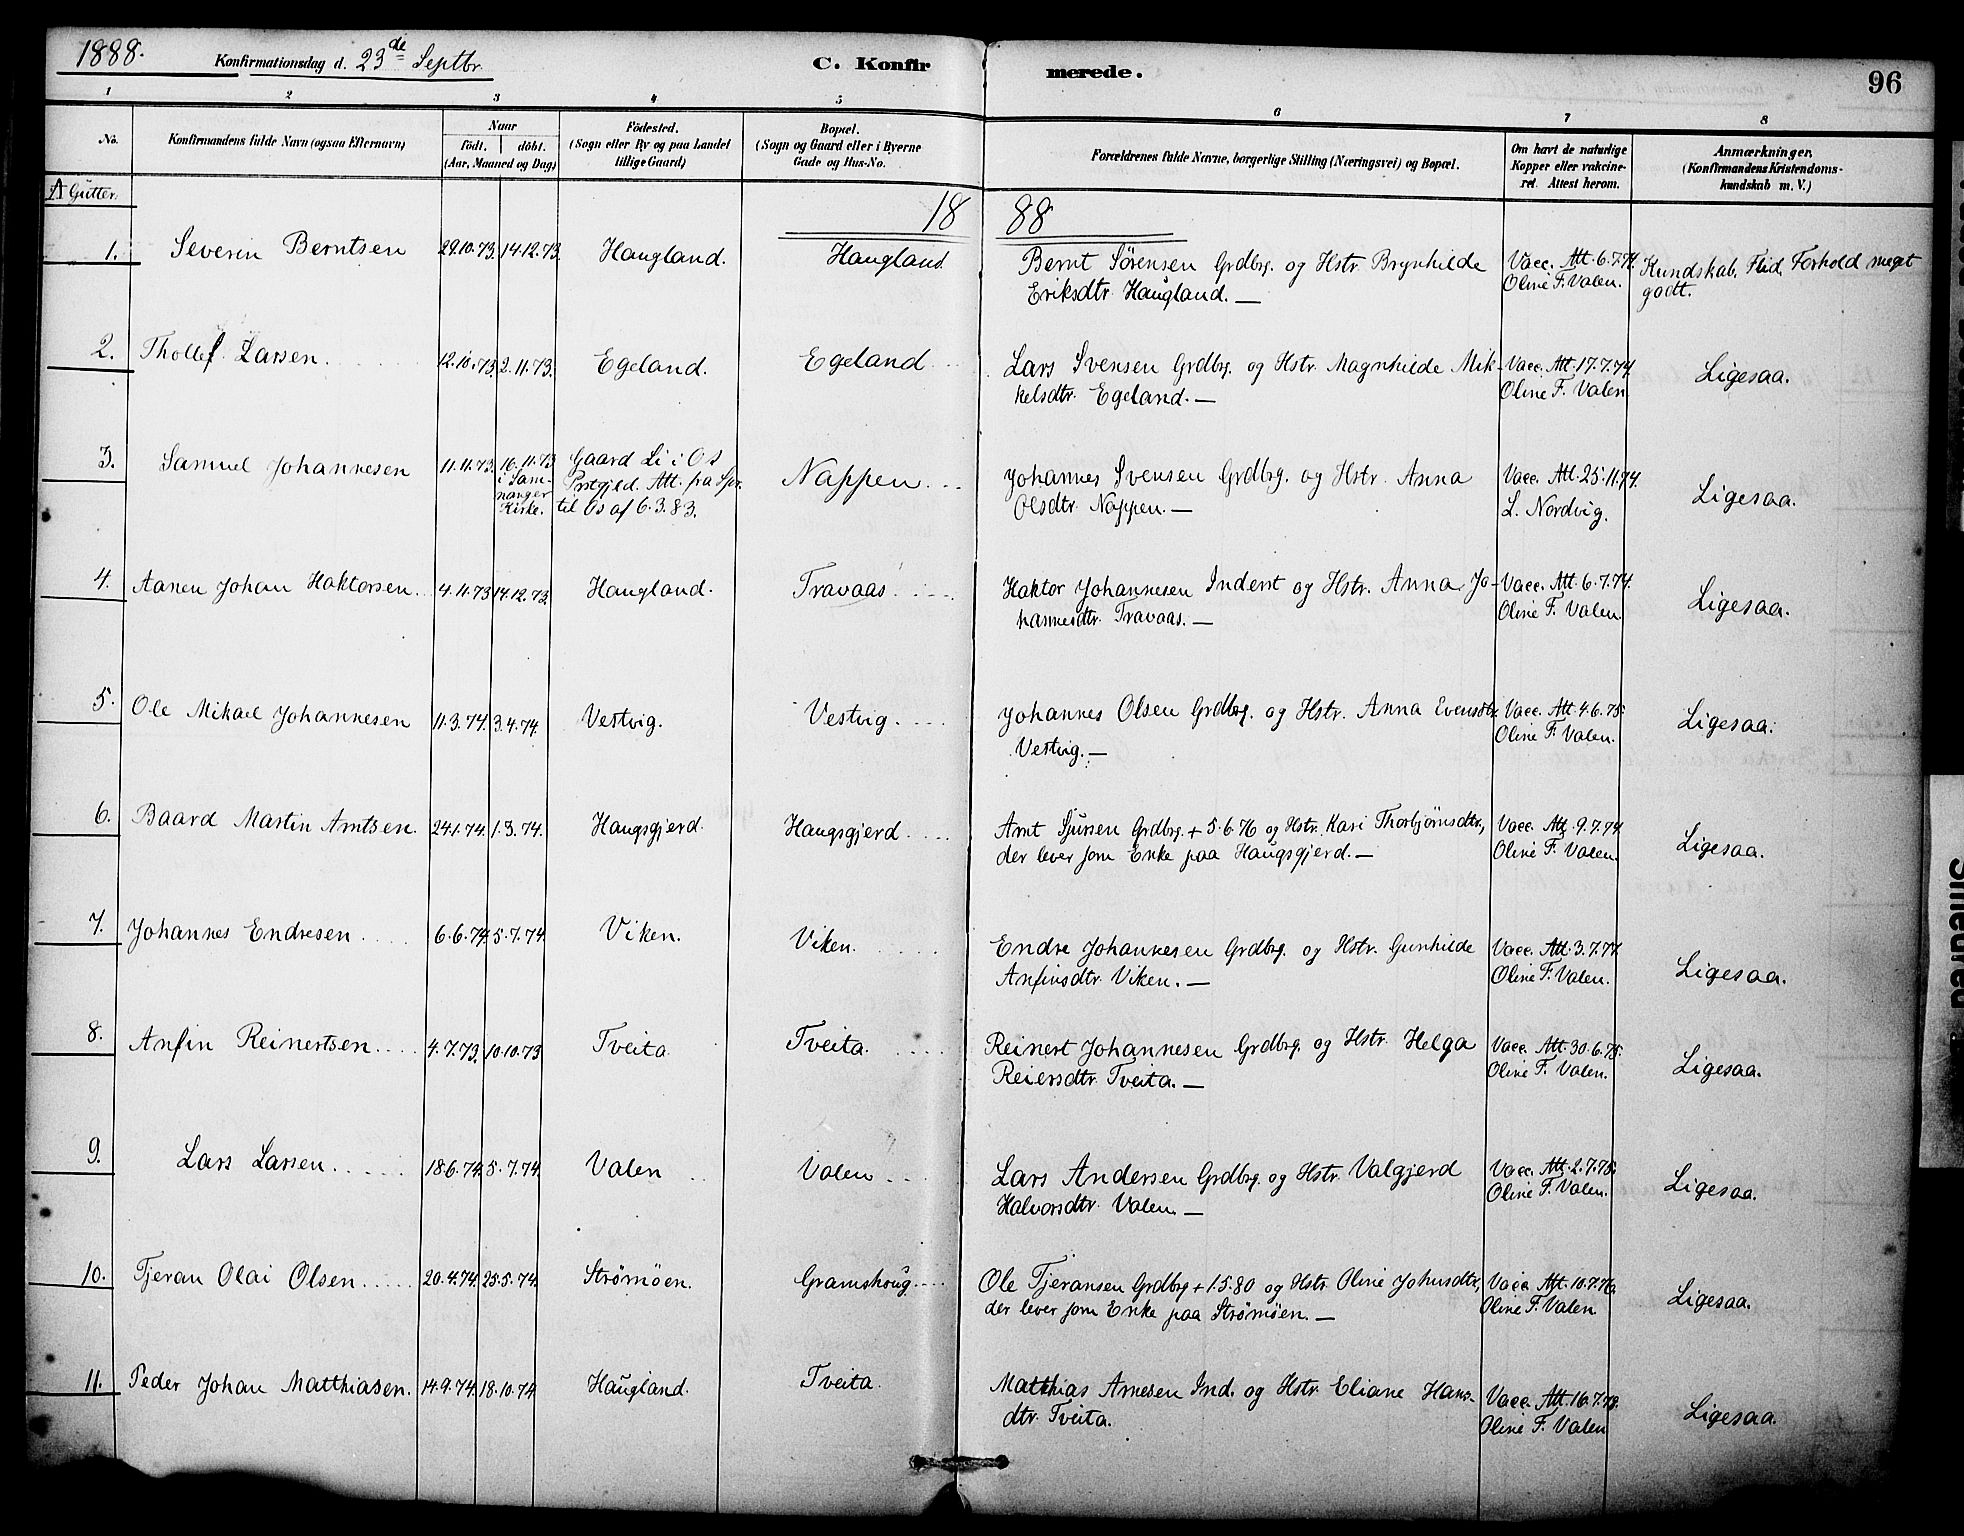 1888. Konfirmationsdag d. 23de Septbr. C. Konfirmerede. 96
1 2 3 4 5 6 7 8
No. Konfirmandens fulde Navn (ogsaa Efternavn) Naar født. døbt. (Aar, Maaned og Dag) Fødested. (Sogn eller By og paa Landet tillige Gaard) Bopæl. (Sogn og Gaard eller i Byerne Gade og Hus-No. Forældrenes fulde Navne, borgerlige Stilling (Næringsvei) og Bopæl. Om havt de naturlige Kopper eller vakcineret. Attest herom. Anmærkninger. (Konfirmandens Kristendomskundskab m. V.)
A Gutter.
1888
1. Severin Berntsen 29.10.73. 14.12.73. Haugland. Haugland Bernt Sørensen Grdbrg. og Hstr. Brynhilde Vacc. Att. 6.7.74. Kundskab, Flid, Forhold meget
Eriksdtr. Haugland. — Oline F. Valen. godt.
2. Thollef Larsen. 12.10.73. 2.11.73. Egeland. Egeland Lars Svensen Grdbrg. og Hstr. Magnhilde Mik- Vacc. Att. 17.7.74. Ligesaa.
kelsdtr. Egeland. — Oline F. Valen
3. Samuel Johannesen 11.11.73. 16.11.73 Gaard Li i Os Nappen Johannes Svensen Grdbrg. og Hstr. Anna Vacc. Att. 25.11.74. Ligesaa.
i Sam- Prstgjeld. Att. fra Spr. Olsdtr. Nappen. — L. Nordvig.
nanger til Os af 6.3.83.
Kirke.
4. Aanen Johan Haktorsen 4.11.73 14.12.73. Haugland. Travaas Haktor Johannesen Inderst og Hstr. Anna Jo- Vacc. Att. 6.7.74. Ligesaa.
hannesdtr. Travaas. — Oline F. Valen.
5. Ole Mikael Johannesen 11.3.74. 3.4.74. Vestvig. Vestvig. Johannes Olsen Grdbrg. og Hstr. Anna Evensdtr. Vacc. Att. 4.6.75. Ligesaa.
Vestvig. — Oline F. Valen.
6. Baard Martin Arntsen. 24.1.74. 1.3.74. Haugsgjerd. Haugsgjerd Arnt Sjursen Grdbrg. + 5.6.76 og Hstr. Kari Thorbjørnsdtr, Vacc. Att. 9.7.74. Ligesaa.
der lever som Enke paa Haugsgjerd. — Oline F. Valen.
7. Johannes Endresen 6.6.74. 5.7.74. Viken. Viken. Endre Johannesen Grdbrg. og Hstr. Gunhilde Vacc. Att. 3.7.77. Ligesaa.
Anfinsdtr. Viken. — Oline F. Valen.
8. Anfin Reinertsen 4.7.73. 10.10.73 Tveita. Tveita. Reinert Johannesen Grdbrg. og Hstr. Helga Vacc. Att. 30.6.75. Ligesaa.
Reiersdtr. Tveita. — Oline F. Valen.
9. Lars Larsen 18.6.74. 5.7.74. Valen Valen Lars Andersen Grdbrg. og Hstr. Valgjerd Vacc. Att. 2.7.75. Ligesaa.
Halvorsdtr. Valen. — Oline F. Valen.
10. Tjeran Olai Olsen 20.4.74. 25.5.74. Strømøen. Gramshoug. Ole Tjeransen Grdbrg + 1.5.80 og Hstr. Oline Johnsdtr, Vacc. Att. 10.7.76. Ligesaa.
der lever som Enke paa Strømøen. — Oline F. Valen
11. Peder Johan Matthiasen. 14.9.74. 18.10.74 Haugland. Tveita. Matthias Arnesen Ind. og Hstr. Eliane Hans- Vacc. Att. 16.7.78. Ligesaa.
dtr. Tveita. Oline F. Valen